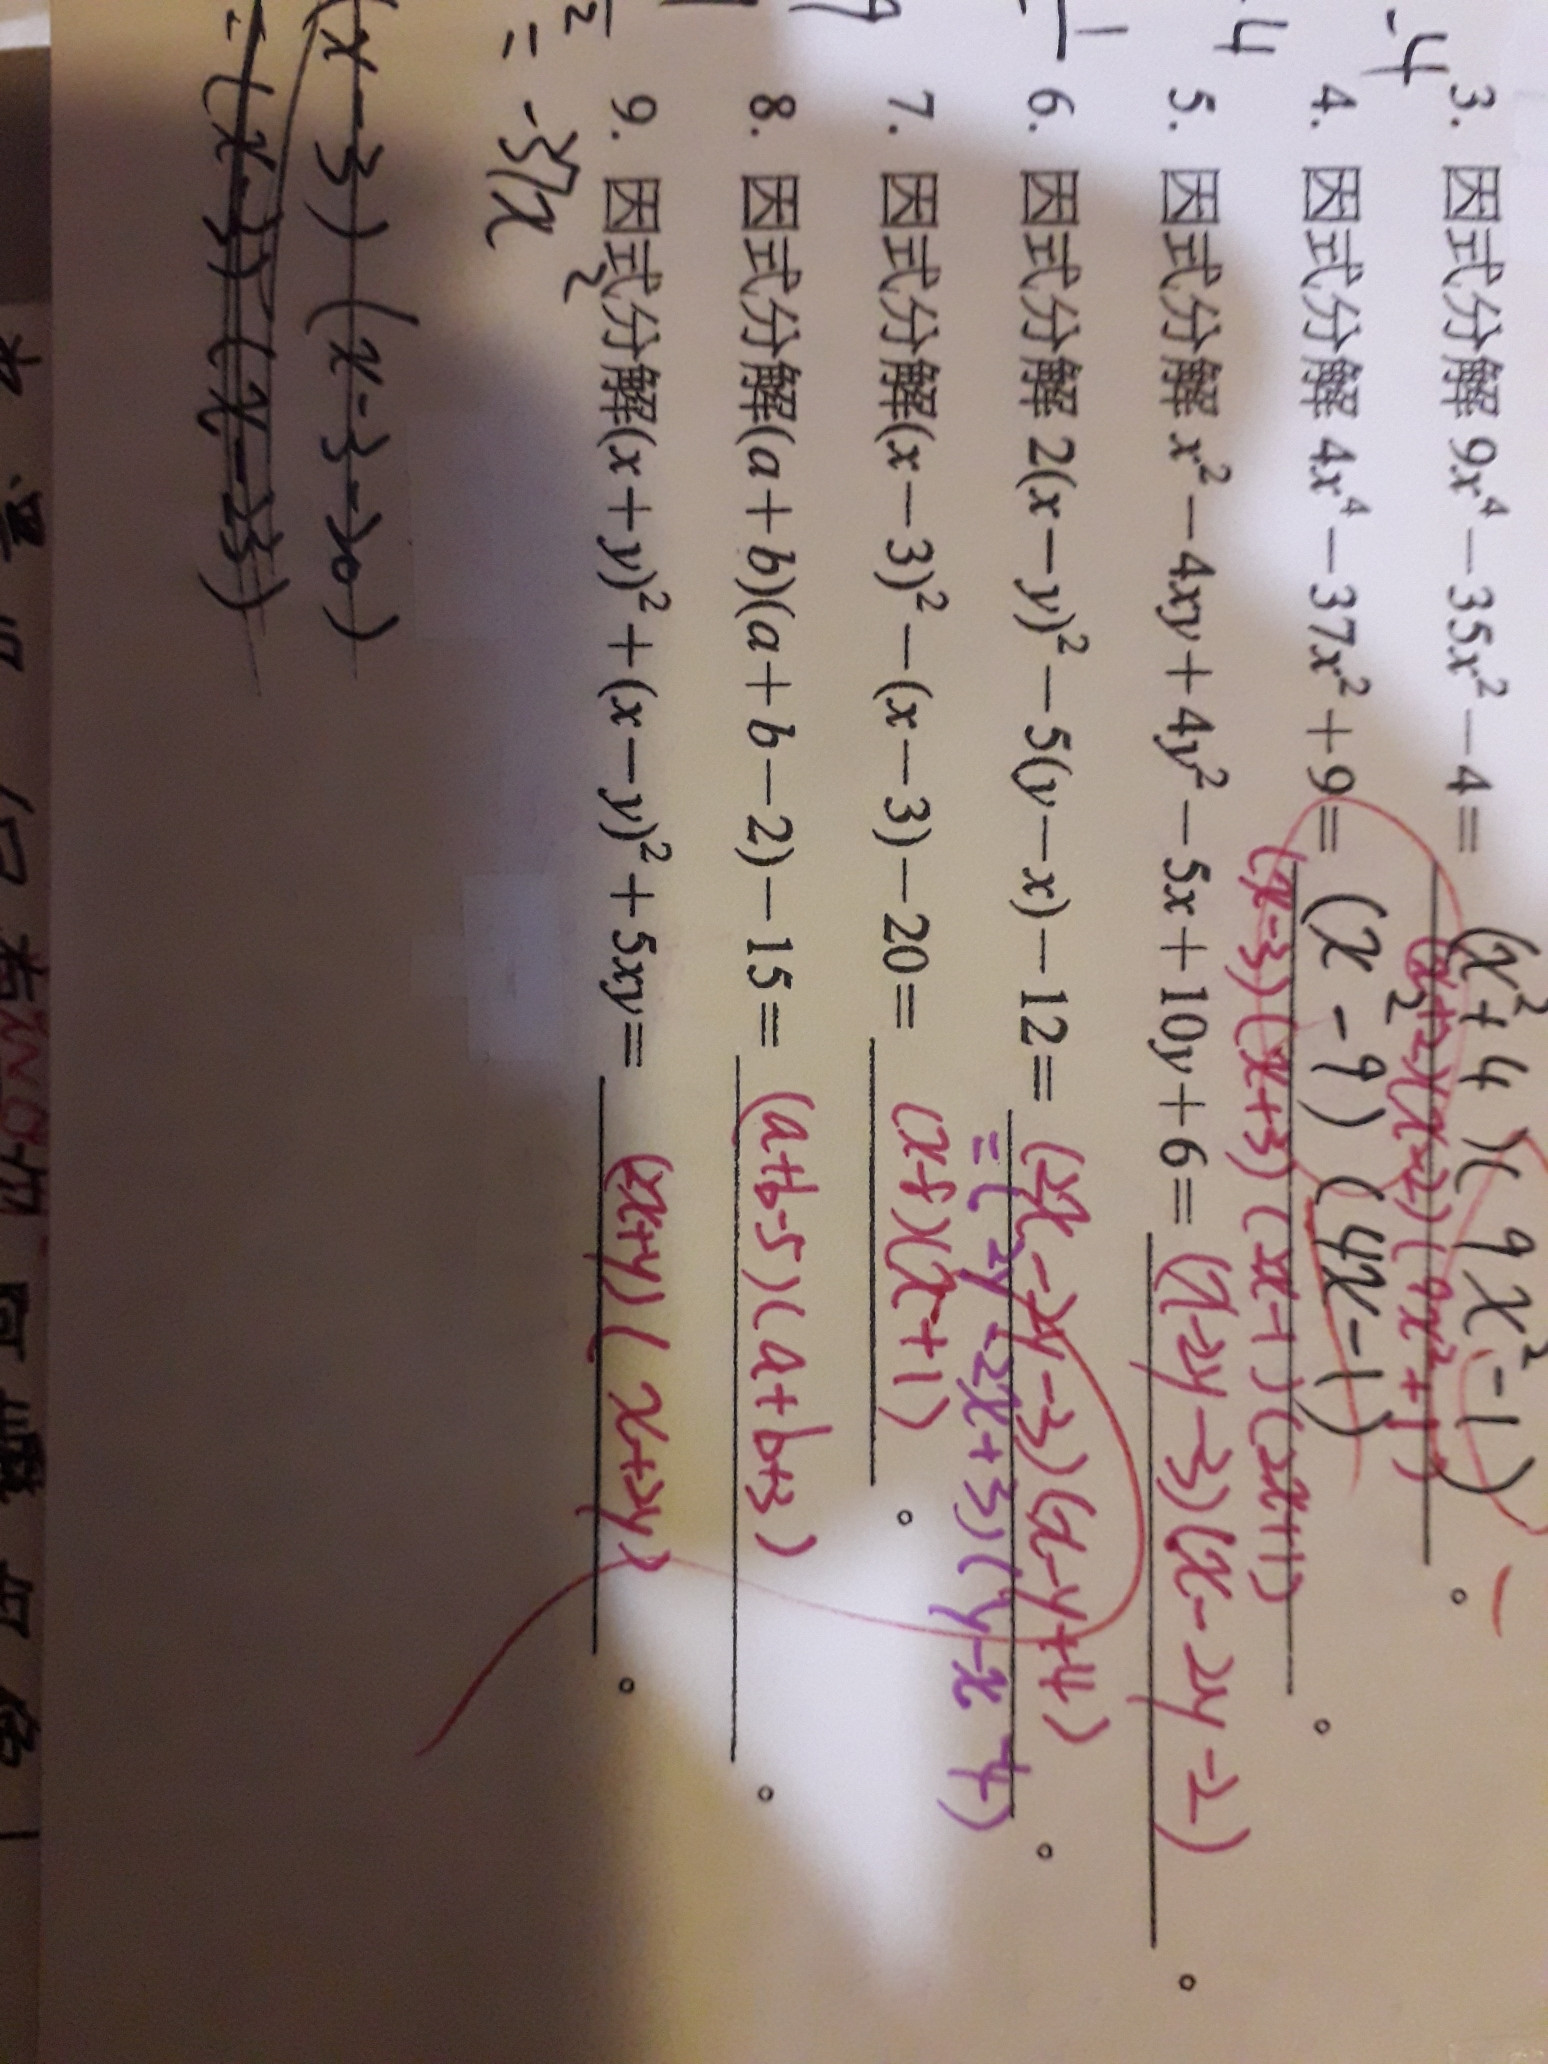 -4
3. 因式分解 9x⁴－35x²－4= (x²+4)(9x²-1)。
(x+2)(x-2)(9x²+1)
4. 因式分解 4x⁴－37x²+9= (x²-9)(4x-1)
(x-3)(x+3)(2x-1)(2x+1)。
5. 因式分解 x²－4xy+4y²－5x+10y+6= (x-2y-3)(x-2y-2)。
6. 因式分解 2(x－y)²－5(y－x)－12= (2x-2y-3)(x-y+4)。
=(2y-2x+3)(y-x-4)
7. 因式分解(x－3)²－(x－3)－20= (x-8)(x+1)。
8. 因式分解(a+b)(a+b－2)－15= (a+b-5)(a+b+3)。
9. 因式分解(x+y)²+(x－y)²+5xy= (2x+y)(x+2y)。
= -37x²
(x-3)(x-3-20)